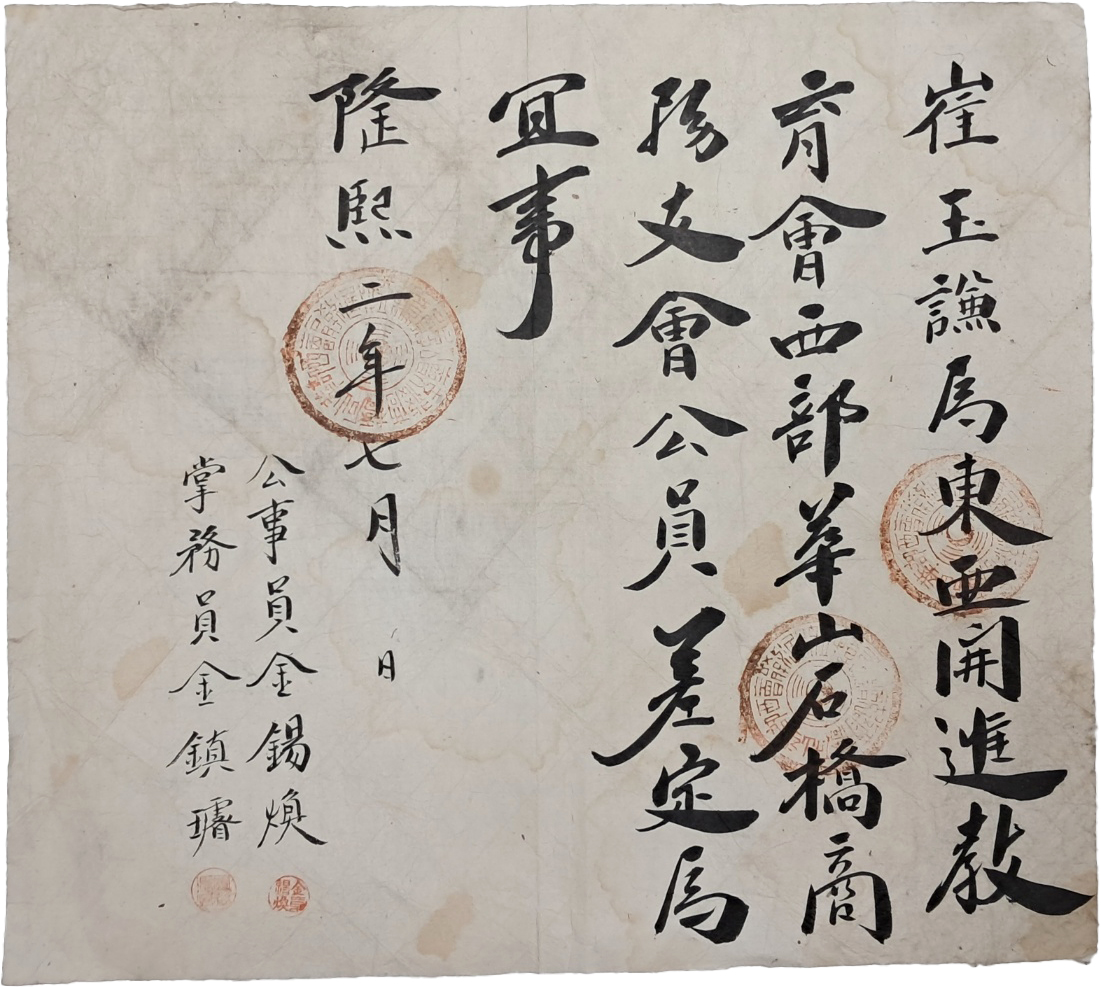 崔玉謙爲東亜開進教
育會西部華山石橋商
務支會公員差定爲
宜事
隆熙二年七月 日
公事員金錫煥
掌務員金鎮璿